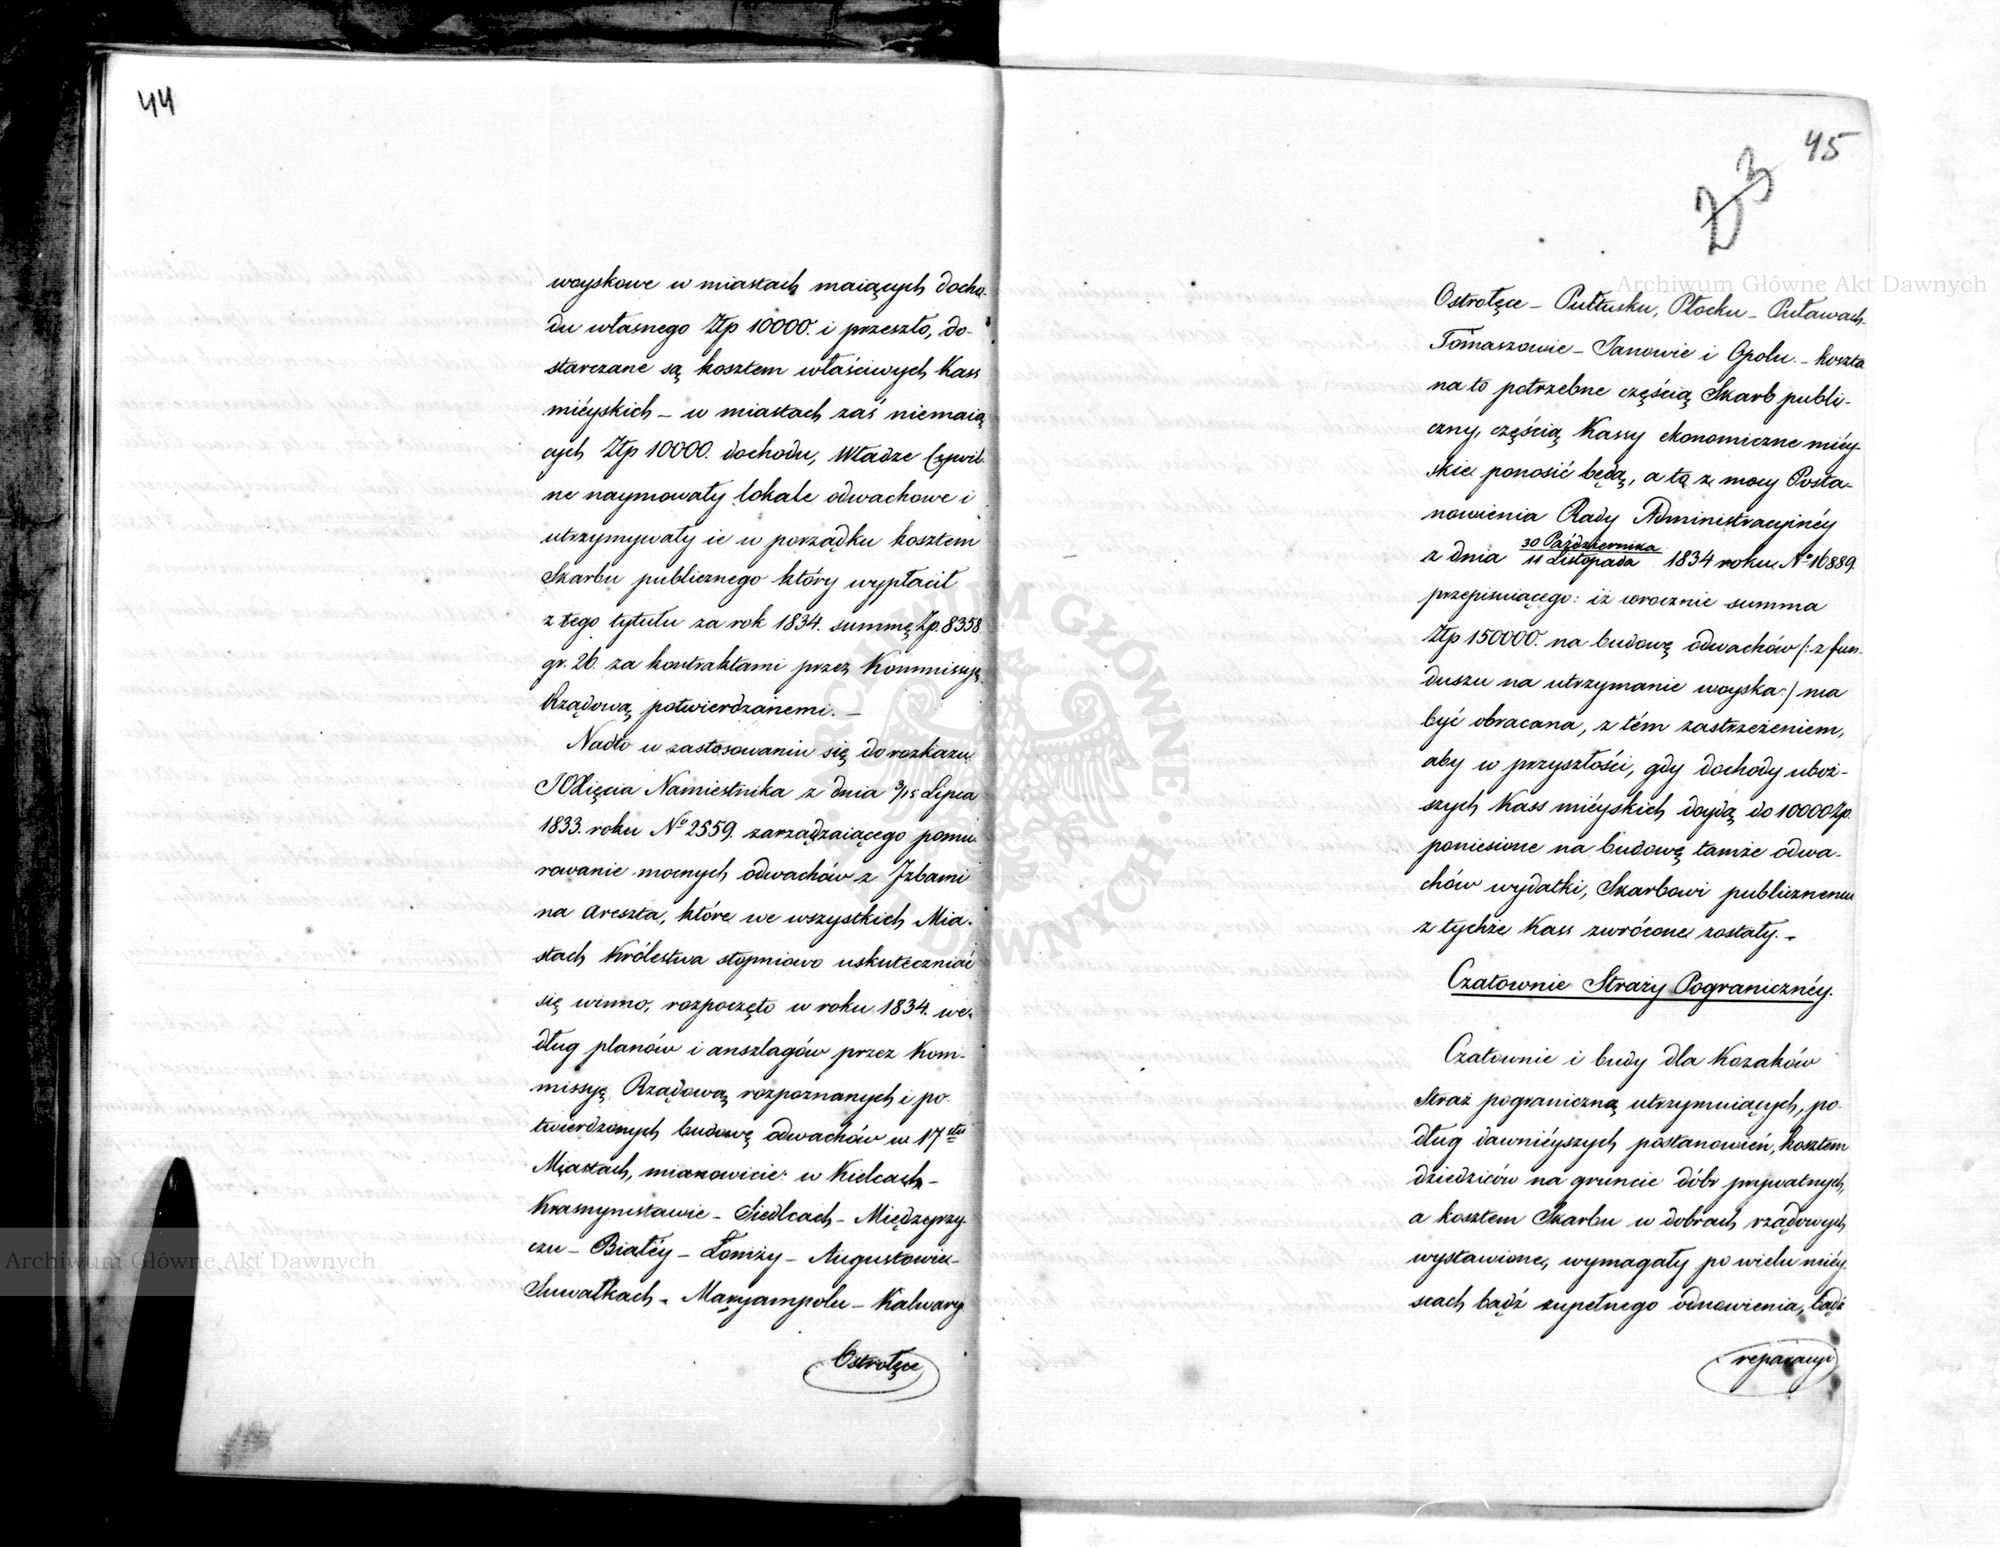 44
woyskowe w miastach maiących docho-
du własnego Złp 10000. i przeszło, do-
starczane są kosztem właściwych Kass
mićyskich – w miastach zaś niemaią
cych Złp 10000. dochodu, Władze Cywil-
ne naymowały lokale odwachowe i
utrzymywały ie w porządku kosztem
Skarbu publicznego który wypłacił
z tego tytułu za rok 1834. summę Zp. 8358.
gr. 26. za kontraktami przez Kommissyą
Rządową potwierdzanemi. –
Nadto w zastosowaniu się do rozkazu
JOXięcia Namiestnika z dnia 3/15 Lipca
1833. roku No 2559. zarządzaiącego pomu-
rowanie mocnych odwachów z Izbami
na areszta, które we wszystkich Mia-
stach Królestwa stopniowo uskuteczniać
się winno, rozpoczęto w roku 1834. we-
dług planów i anszlagów przez Kom-
missyę Rządową rozpoznanych i po-
twierdzonych budowę odwachów w 17stu
Miastach, mianowicie: w Kielcach –
Krasnymstawie – Siedlcach – Międzyrzy-
czu – Białéy – Łomży – Augustowie –
Suwałkach – Maryampolu – Kalwaryi
Ostrołęce
45
23
Ostrołęce – Pułtusku, Płocku – Puławach –
Tomaszowie – Janowie i Opolu. – koszta
na to potrzebne częścią Skarb publi-
czny, częścią Kassy ekonomiczne miéy-
skie ponosić będą, a to z mocy Posta-
nowienia Rady Administracyinéy
z dnia 30 Października / 11 Listopada 1834 roku No 16889.
przepisuiącego: iż corocznie summa
Złp 150000. na budowę odwachów /: z fun-
duszu na utrzymanie woyska :/ ma
być obracana, z tém zastrzeżeniem,
aby w przyszłości, gdy dochody uboż-
szych Kass miéyskich doydą do 10000 Zp.
poniesione na budowę tamże odwa-
chów wydatki, Skarbowi publicznemu
z tychże Kass zwrócone zostały. –
Czatownie Straży Pogranicznéy.
Czatownie i budy dla Kozaków
straż pograniczną utrzymuiących, po-
dług dawniéyszych postanowień, kosztem
dziedziców na gruncie dóbr prywatnych,
a kosztem Skarbu w dobrach rządowych
wystawione, wymagały po wielu miéy-
scach bądź zupełnego odnowienia, bądź
reparacyi
Archiwum Główne Akt Dawnych
Archiwum Główne Akt Dawnych
ARCHIWUM GŁÓWNE AKT DAWNYCH